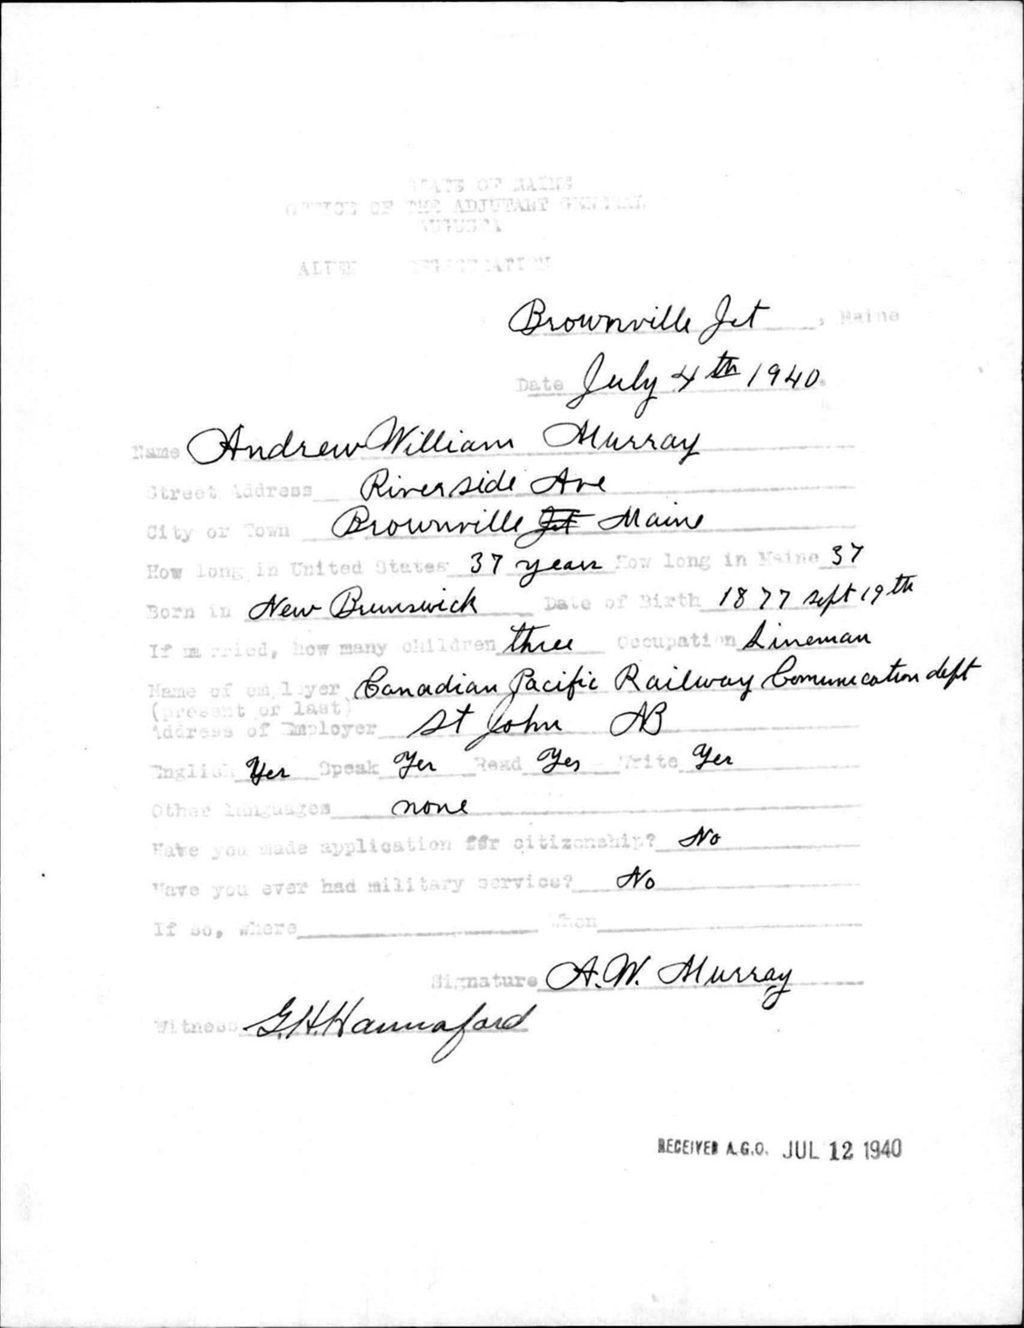 STATE OF MAINE
OFFICE OF THE ADJUTANT GENERAL
AUGUSTA
ALIEN REGISTRATION
Brownville Jct, Maine
Date July 4th 1940
Name Andrew William Murray
Street Address Riverside Ave
City or Town Brownville Jct Maine
How long in United States 37 years How long in Maine 37
Born in New Brunswick Date of Birth 1877 sept 19th
If married, how many children three Occupation Lineman
Name of employer Canadian Pacific Railway Comunication dept
(present or last)
Address of Employer St John NB
English Yes Speak Yes Read Yes Write Yes
Other languages none
Have you made application for citizenship? No
Have you ever had military service? No
If so, where When
Signature A.W. Murray
Witness G.H. Hannaford
RECEIVED A.G.O. JUL 12 1940